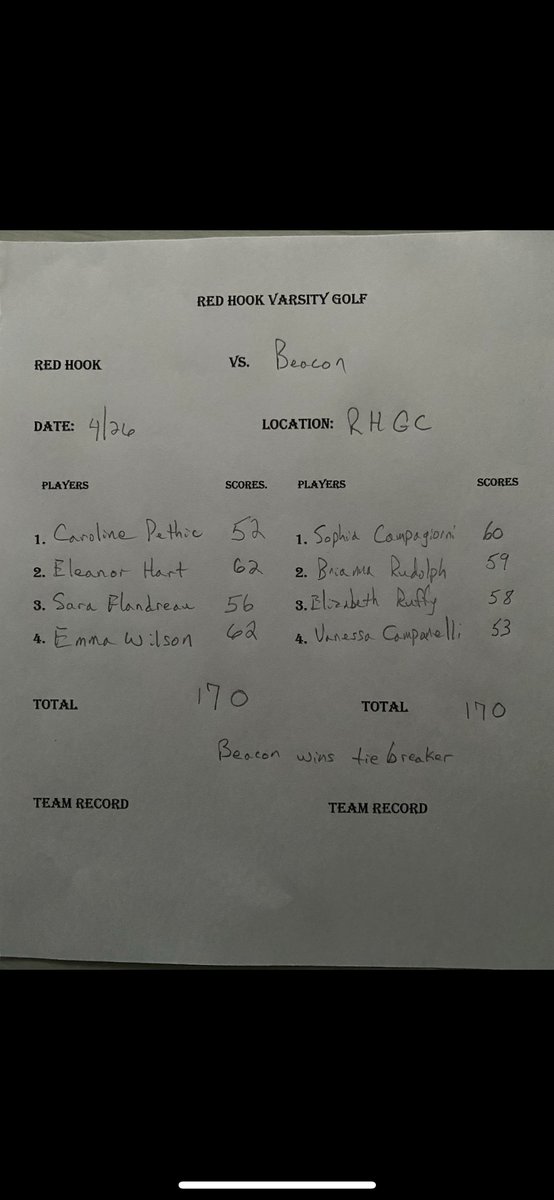 RED HOOK VARSITY GOLF
RED HOOK VS. Beacon
DATE: 4/26 LOCATION: RHGC
PLAYERS SCORES. PLAYERS SCORES
1. Caroline Pethic 52 1. Sophia Campagiorni 60
2. Eleanor Hart 62 2. Brianna Rudolph 59
3. Sara Flandreau 56 3. Elizabeth Ruffy 58
4. Emma Wilson 62 4. Vanessa Campanelli 53
TOTAL 170 TOTAL 170
Beacon wins tie breaker
TEAM RECORD TEAM RECORD